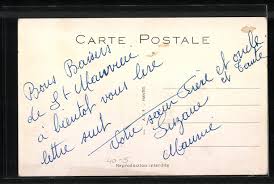 CARTE POSTALE
Bons Baisers
de St Mauricie
à bientôt vous lire
lettre suit
Votre sœur Frère et oncle
et Tante
Suzane
Maurice
40-5
Reproduction interdite